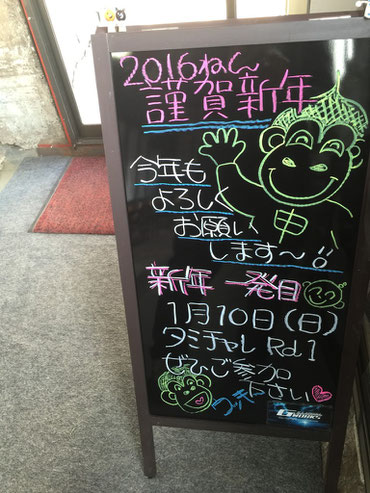 2016ねん
謹賀新年
今年も
よろしく
お願い
します〜!!
申
新年 一発目
1月10日(日)
タミチャレ Rd.1
ぜひご参加
下さい
ウッキー